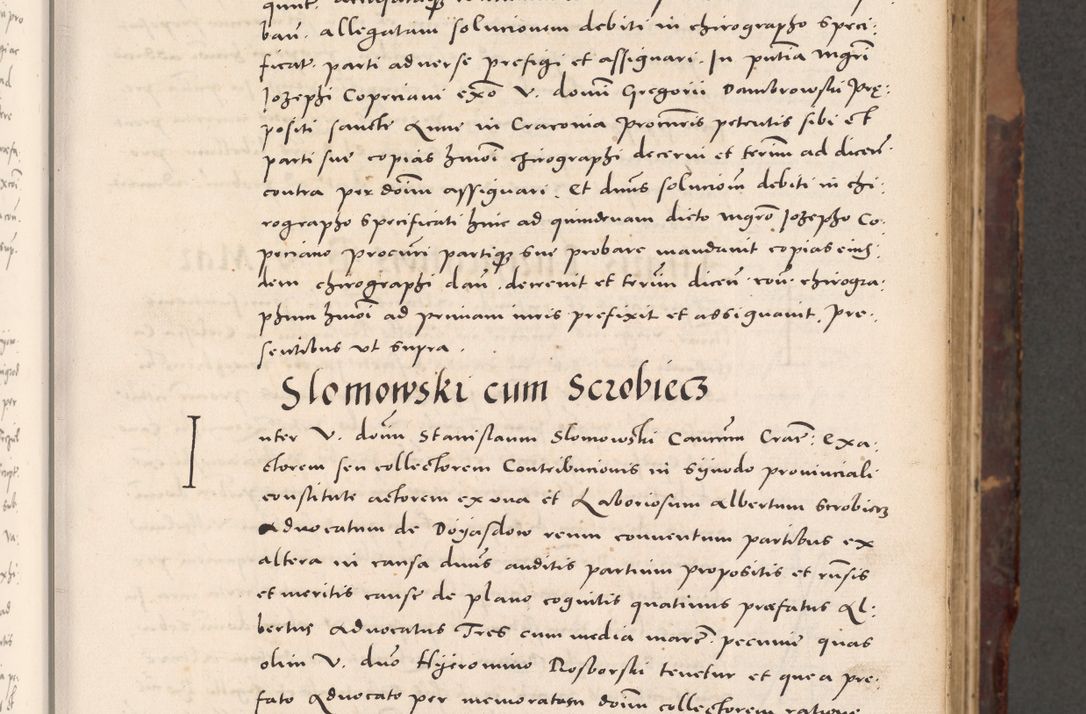 bań. allegatam solucionem debiti in chirographo speci:
ficat. parti adverse prefigi et assignari. In pntia mgri
Jozephi Copeciani exo V. domi Gregorii Dambrowski Prę:
positi sancte Anne in Cracovia procuris petentis sibi et
parti sue copias hmoi chirographi decerni et termi ad dicen
contra per doim assignari. Et dnus soluciom debiti in chi:
rographo specificati hinc ad quindenam dicto mgro Jozepho Co:
peciano procuri partiq sue probare mandavit copias eius:
dem chirographi dań. decrevit et termi dicen. con. chirogra:
phum hmoi ad primam iuris prefixit et assignavit. Pre:
sentibus ut supra.
Slomowski cum Scrobiecz
Inter V. domi Stanislaum Slomowski Cancum Crac: Exa:
ctorem seu collectorem Contribucionis in Synodo provinciali
constitute actorem ex una et Laboriosum Albertum Scrobiecz
Advocatum de Doyasdow reum conventum partibus ex
altera in causa dnus auditis partium propositis et rnsis
et meritis cause de plano cognitis quatinus præfatus Al:
bertus Advocatus Tres cum media marc. pecunie quas
olim V. dno Hyeronimo Rosborski tenetur et que a pre:
fato Advocato per memoratum doim collectorem ratione